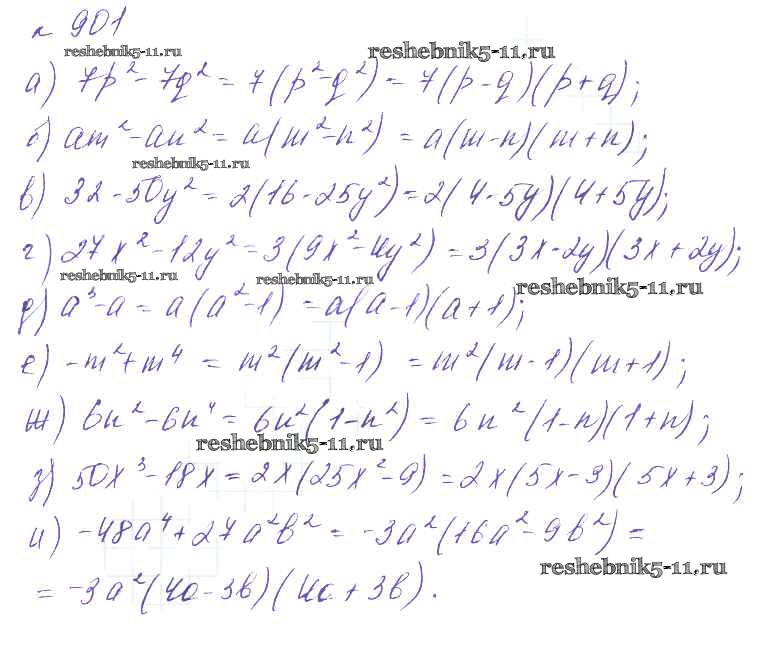 № 901
reshebnik5-11.ru
reshebnik5-11.ru
а) 7p² - 7q² = 7(p² - q²) = 7(p - q)(p + q);
б) am² - an² = a(m² - n²) = a(m - n)(m + n);
reshebnik5-11.ru
в) 32 - 50y² = 2(16 - 25y²) = 2(4 - 5y)(4 + 5y);
г) 27x² - 12y² = 3(9x² - 4y²) = 3(3x - 2y)(3x + 2y);
reshebnik5-11.ru
reshebnik5-11.ru
reshebnik5-11.ru
д) a³ - a = a(a² - 1) = a(a - 1)(a + 1);
е) -m² + m⁴ = m²(m² - 1) = m²(m - 1)(m + 1);
ж) 6n² - 6n⁴ = 6n²(1 - n²) = 6n²(1 - n)(1 + n);
reshebnik5-11.ru
з) 50x³ - 18x = 2x(25x² - 9) = 2x(5x - 3)(5x + 3);
и) -48a⁴ + 27a²b² = -3a²(16a² - 9b²) =
reshebnik5-11.ru
= -3a²(4a - 3b)(4a + 3b).